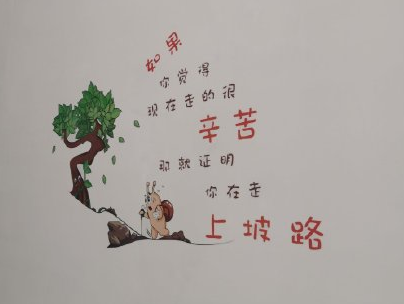 如果
你觉得
现在走的很
辛苦
那就证明
你在走
上坡路